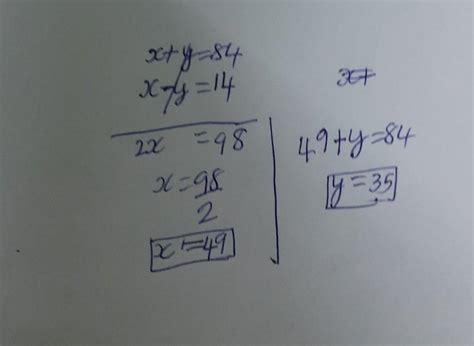 x+y=84
x-y=14
2x =98
x=98
2
x=49
x+
49+y=84
y=35